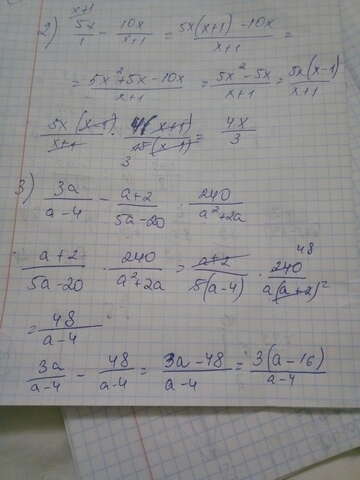 x+1
2) 5x/1 - 10x/x+1 = 5x(x+1) - 10x/x+1 =
= 5x²+5x-10x/x+1 = 5x²-5x/x+1 = 5x(x-1)/x+1
5x(x-1)/x+1 · 4(x+1)/15(x-1) = 4x/3
3
3) 3a/a-4 - a+2/5a-20 · 240/a²+2a
48
a+2/5a-20 · 240/a²+2a = a+2/5(a-4) · 240/a(a+2)
= 48/a-4
3a/a-4 - 48/a-4 = 3a-48/a-4 = 3(a-16)/a-4